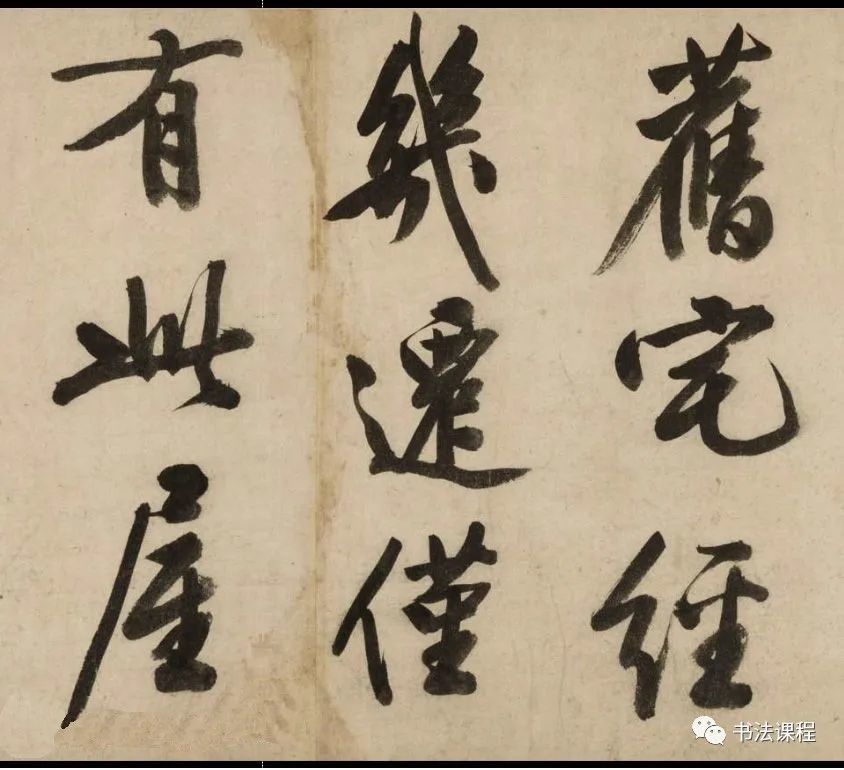 舊宅經
幾遷僅
有此屋
书法课程